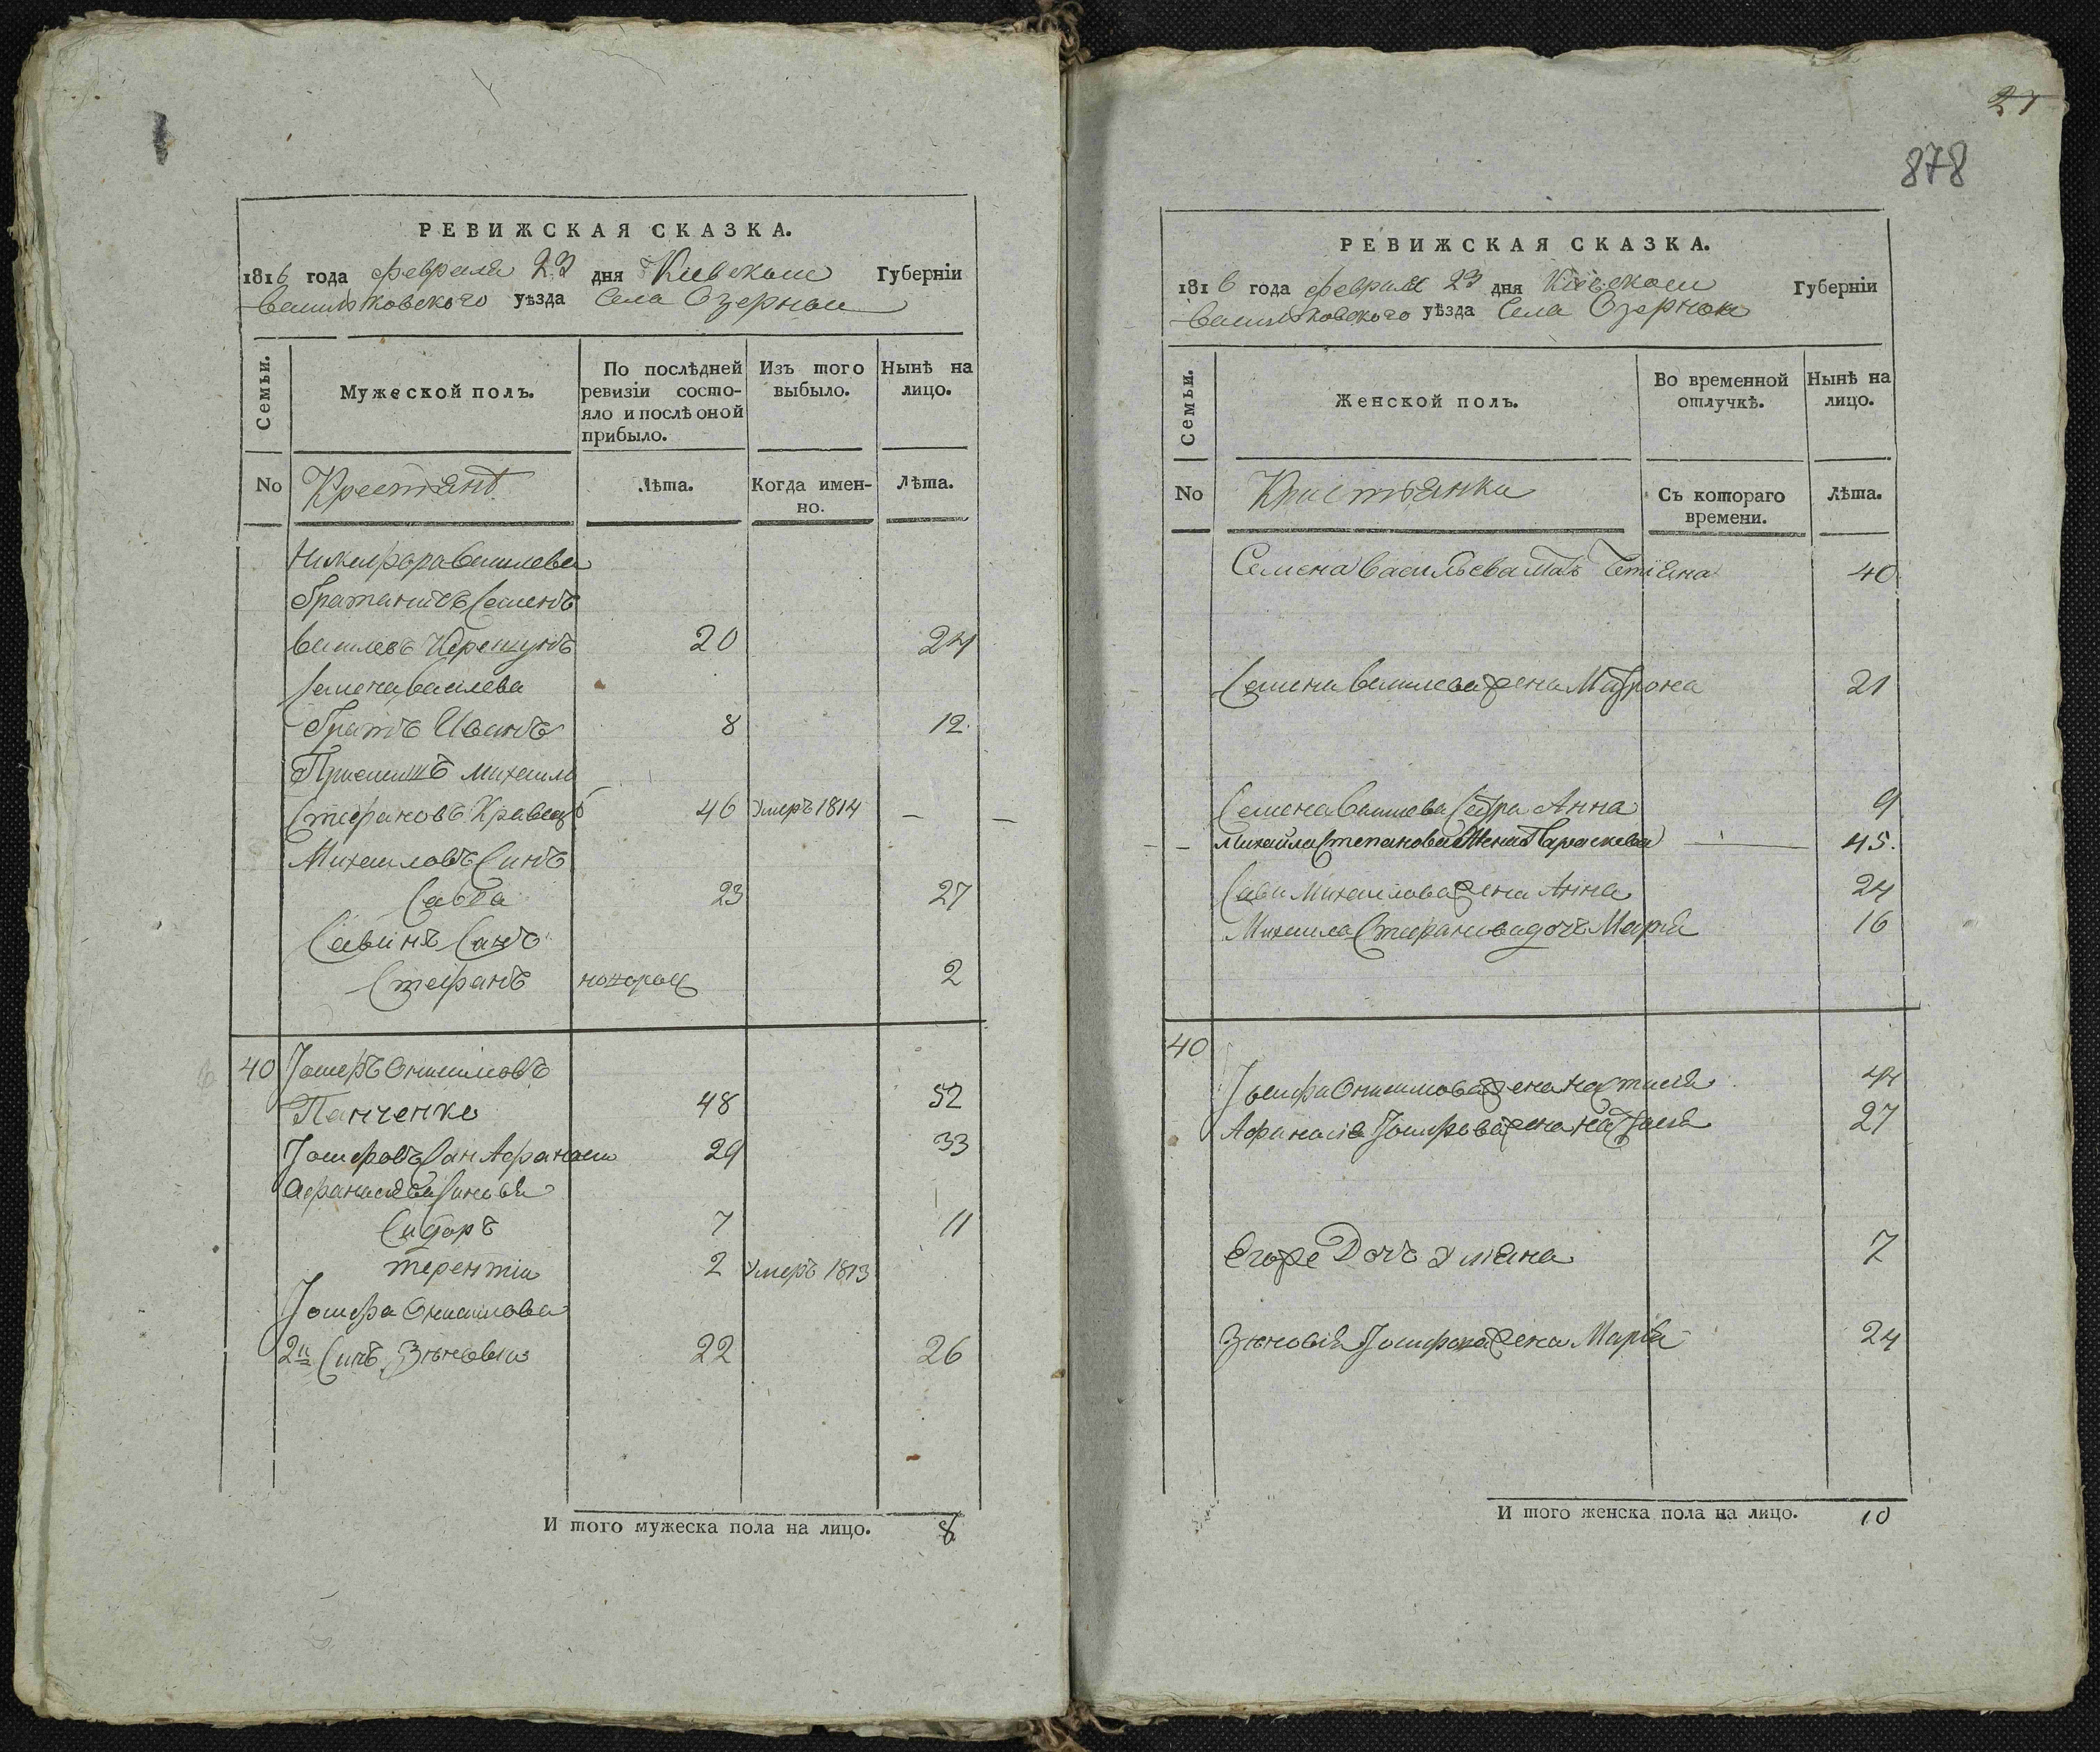 РЕВИЖСКАЯ СКАЗКА.
1816 года февраля 23 дня Киевской Губерніи
Васильковского уѣзда Села Озерной
Семьи. Мужеской полъ. По послѣдней ревизіи состояло и послѣ оной прибыло. Изъ того выбыло. Нынѣ на лицо.
No Крестянѣ Лѣта. Когда именно. Лѣта.
Никифора Василева
Братаничъ Семенъ
Василевъ 20 24
Семена Василева
Братъ Иванъ 8 12
Приемишъ Михаило
Стефановъ Кравецъ 46 Умеръ 1814 —
Михаиловъ Синъ
Савва 23 27
Савинъ Синъ
Стефанъ новорож 2
40 Іосифъ Онисимовъ
Панченко 48 52
Іосифовъ Син Афанасий 29 33
Афанасиева Синовя
Сидоръ 7 11
терентіи 2 Умеръ 1813
Іосифа Онисимова
2й Синъ Зѣновіи 22 26
И того мужеска пола на лицо. 8
27
878
РЕВИЖСКАЯ СКАЗКА.
1816 года февраля 23 дня Кіевской Губерніи
Васильковского уѣзда Села Озерной
Семьи. Женской полъ. Во временной отлучкѣ. Нынѣ на лицо.
No Кристьянки Съ котораго времени. Лѣта.
Семена Васильева Мать Тетіяна 40
Семена Василева жена Матрона 21
Семена Василева Сестра Анна 9
Михайла Степанова Жена Параскева 45.
Сави Михаилова жена Анна 24
Михаила Стефанова дочъ Марія 16
40
Іосифа Онисимова жена Настасія 44
Афанасія Іосифова жена Настасія 27
Егоже Дочъ Уліяна 7
Зѣновія Іосифова жена Марія 24
И того женска пола на лицо. 10